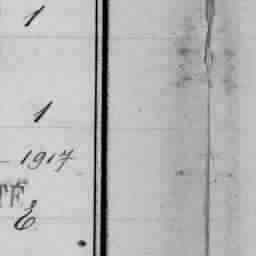 1
1
- 1917
TF
E